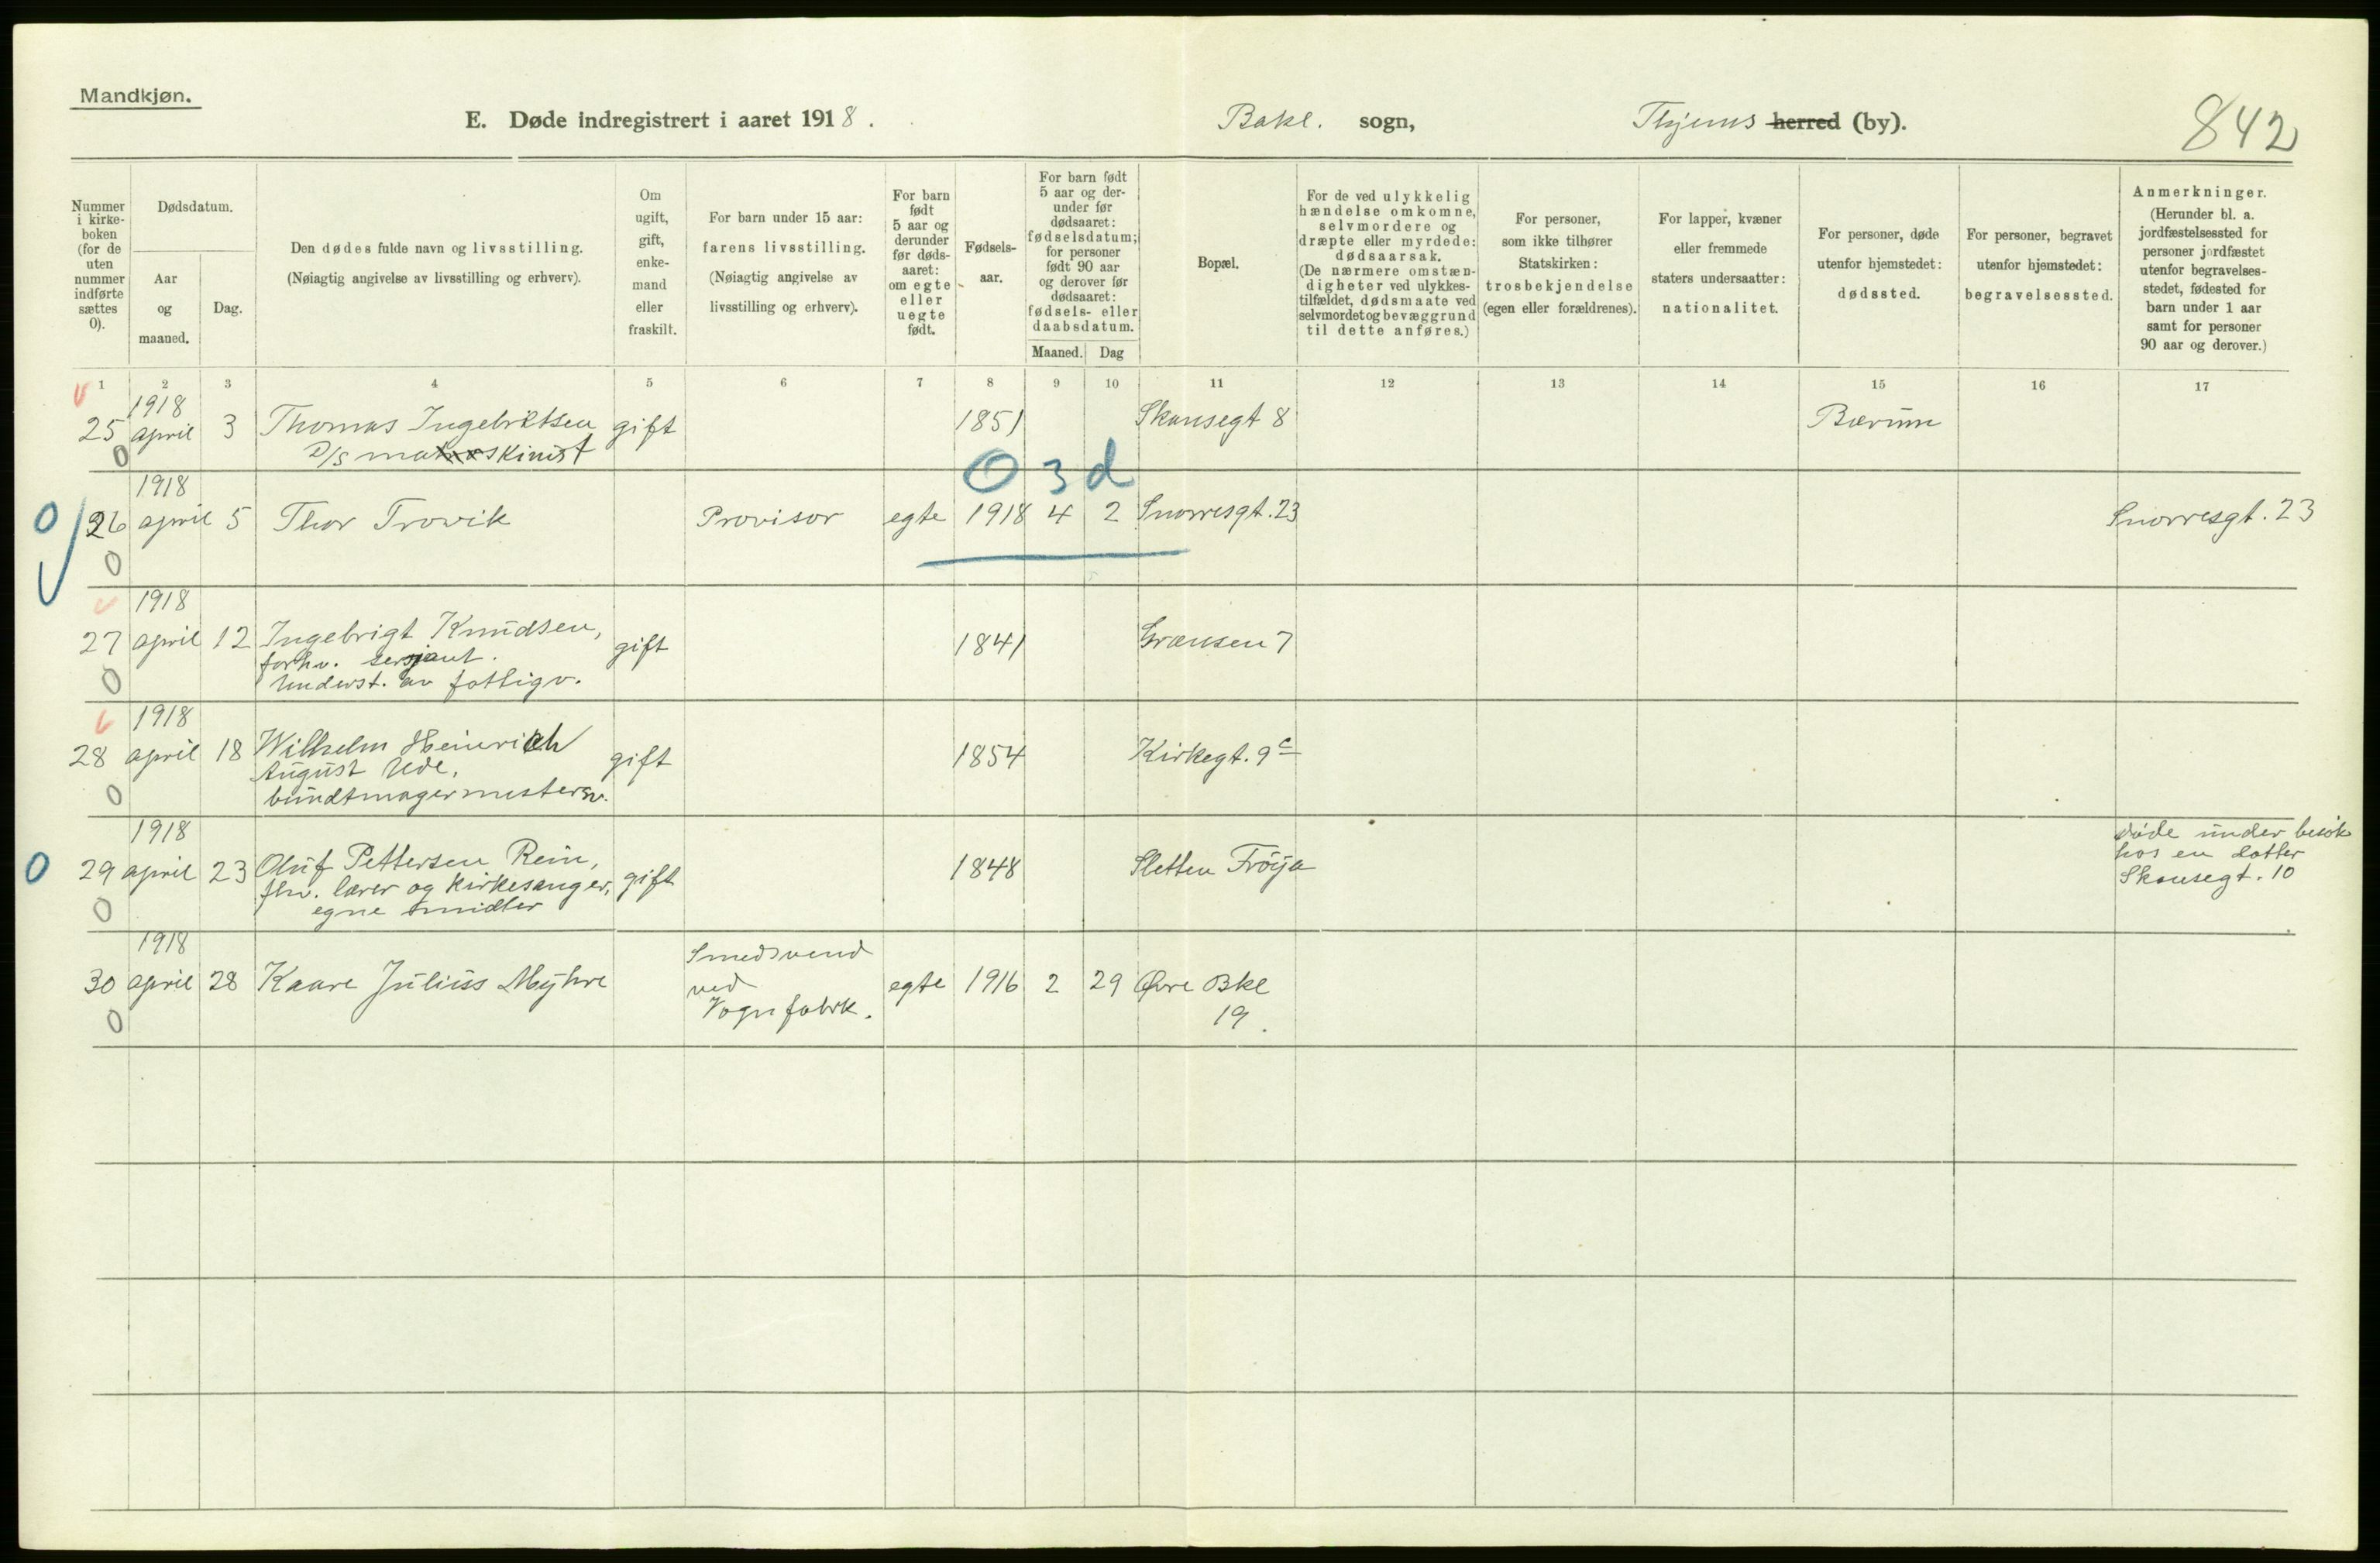 Mandkjøn.
E. Døde indregistrert i aaret 1918.
Bakl. sogn,
Thjems herred (by).
842
Nummer i kirke-boken (for de uten nummer indførte sættes 0).
Dødsdatum.
Aar og maaned.
Dag.
Den dødes fulde navn og livsstilling.
(Nøiagtig angivelse av livsstilling og erhverv).
Om ugift, gift, enke-mand eller fraskilt.
For barn under 15 aar:
farens livsstilling.
(Nøiagtig angivelse av livsstilling og erhverv).
For barn født 5 aar og derunder før døds-aaret: om egte eller uegte født.
Fødsels-aar.
For barn født 5 aar og der-under før dødsaaret: fødselsdatum; for personer født 90 aar og derover før dødsaaret: fødsels- eller daabsdatum.
Maaned. Dag
Bopæl.
For de ved ulykkelig hændelse omkomne, selvmordere og dræpte eller myrdede: dødsaarsak.
(De nærmere omstæn-digheter ved ulykkes-tilfældet, dødsmaate ved selvmordet og bevæggrund til dette anføres.)
For personer, som ikke tilhører Statskirken: trosbekjendelse (egen eller forældrenes).
For lapper, kvæner eller fremmede staters undersaatter: nationalitet.
For personer, døde utenfor hjemstedet: dødssted.
For personer, begravet utenfor hjemstedet: begravelsessted.
Anmerkninger.
(Herunder bl. a. jordfæstelsessted for personer jordfæstet utenfor begravelses-stedet, fødested for barn under 1 aar samt for personer 90 aar og derover.)
1 2 3 4 5 6 7 8 9 10 11 12 13 14 15 16 17
1918
25 april 3 Thomas Ingebriktsen gift 1851 Skansegt 8 Bærum
0 D/S maskinist
0 3 d
1918
0 26 april 5 Thor Trovik Provisor egte 1918 4 2 Snorresgt. 23 Snorresgt. 23
0
1918
27 april 12 Ingebrigt Knudsen, gift 1841 Grænsen 7
forhv. sersjant.
0 Underst. av fattigv.
1918
28 april 18 Wilhelm Heinrich gift 1854 Kirkegt. 9c
August Ude,
0 bundtmagermester
1918
0 29 april 23 Oluf Pettersen Rein, gift 1848 Sletten Frøya
fhv. lærer og kirkesanger,
0 egne midler
døde under besøk
hos en datter
Skansegt. 10
1918
30 april 28 Kaare Julius Myhre egte 1916 2 29 Øvre Bkl
19.
Smedsvend
ved
Vognfabrk.
0